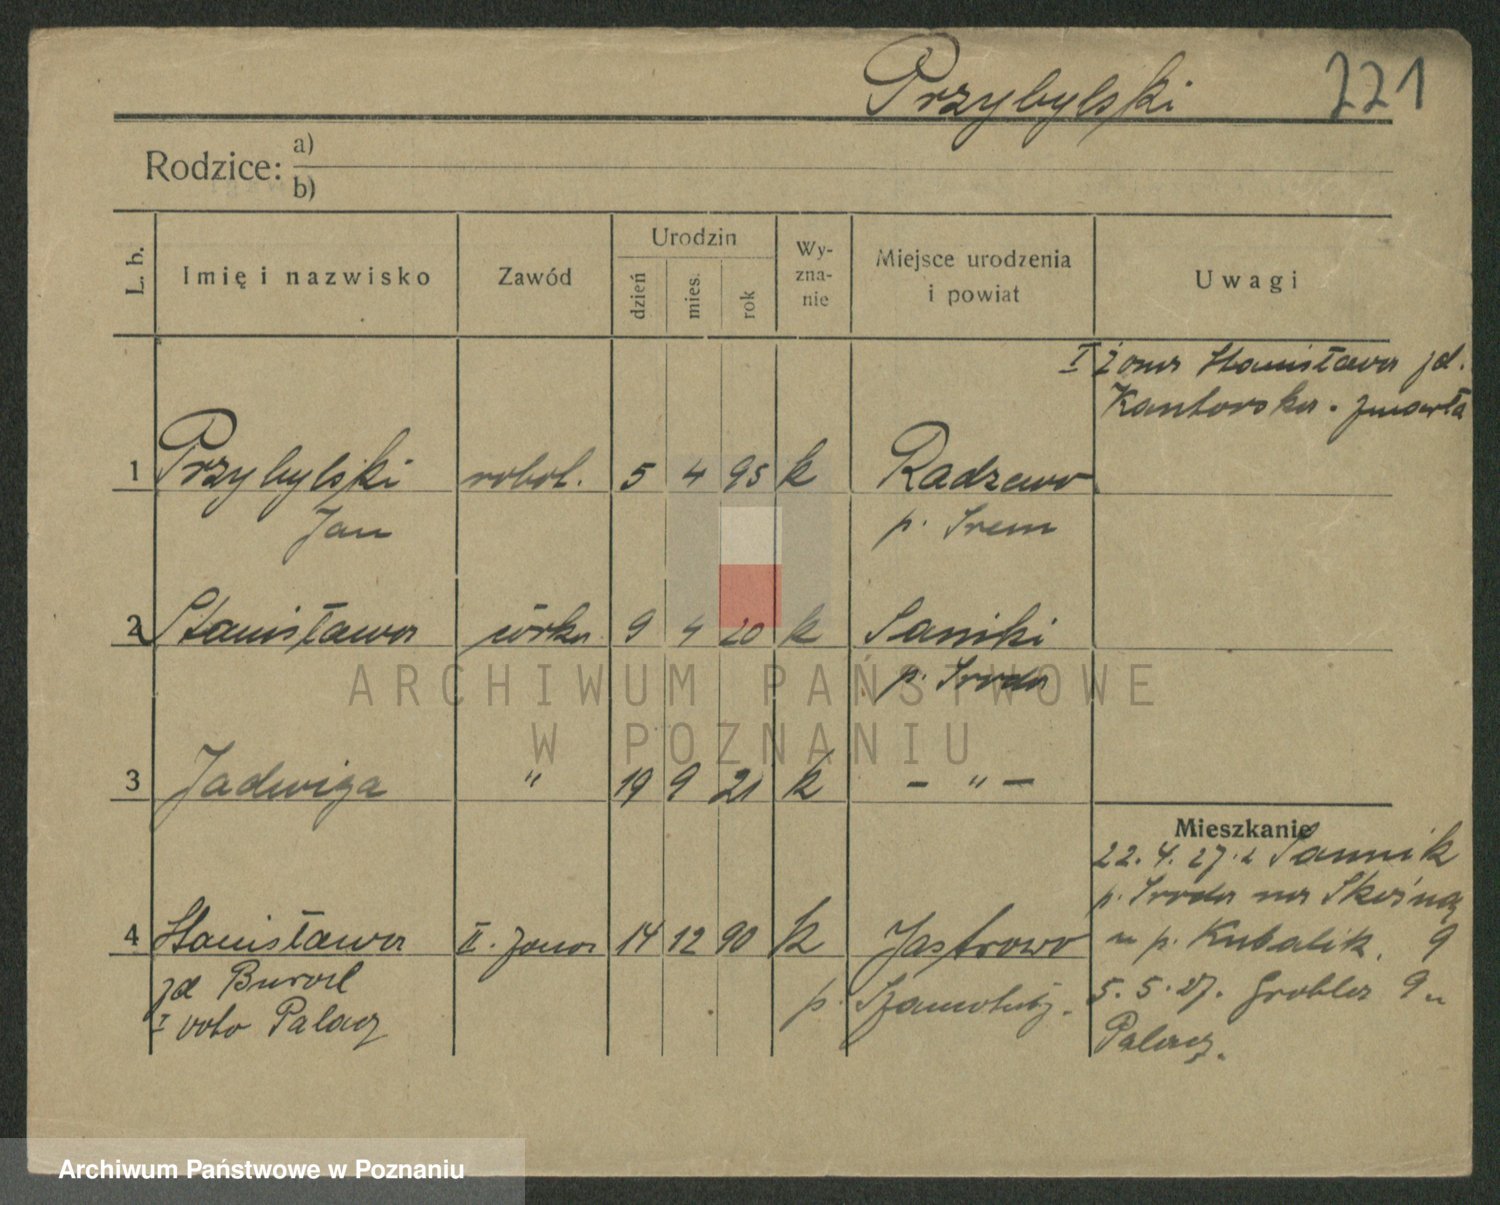 Przybylski 221
Rodzice: a)
b)
L. b. Imię i nazwisko Zawód Urodzin dzień mies. rok Wy-zna-nie Miejsce urodzenia i powiat Uwagi
I żona Stanisława zd.
Kantorska. zmarła
1 Przybylski robot. 5 4 95 k Radzewo
Jan p. Śrem
2 Stanisława córka 9 4 20 k Sanniki
p. Środa
ARCHIWUM PAŃSTWOWE
W POZNANIU
3 Jadwiga " 19 9 21 k – " –
Mieszkanie
22.4.27. z Sannik
p. Środa na
4 Stanisława II. żona 14 12 90 k Jastrowo
u p. Kubalik. 9
zd p. Szamotuły. 5.5.27. Grobla 9 u
I voto Palacz
Palacz.
Archiwum Państwowe w Poznaniu